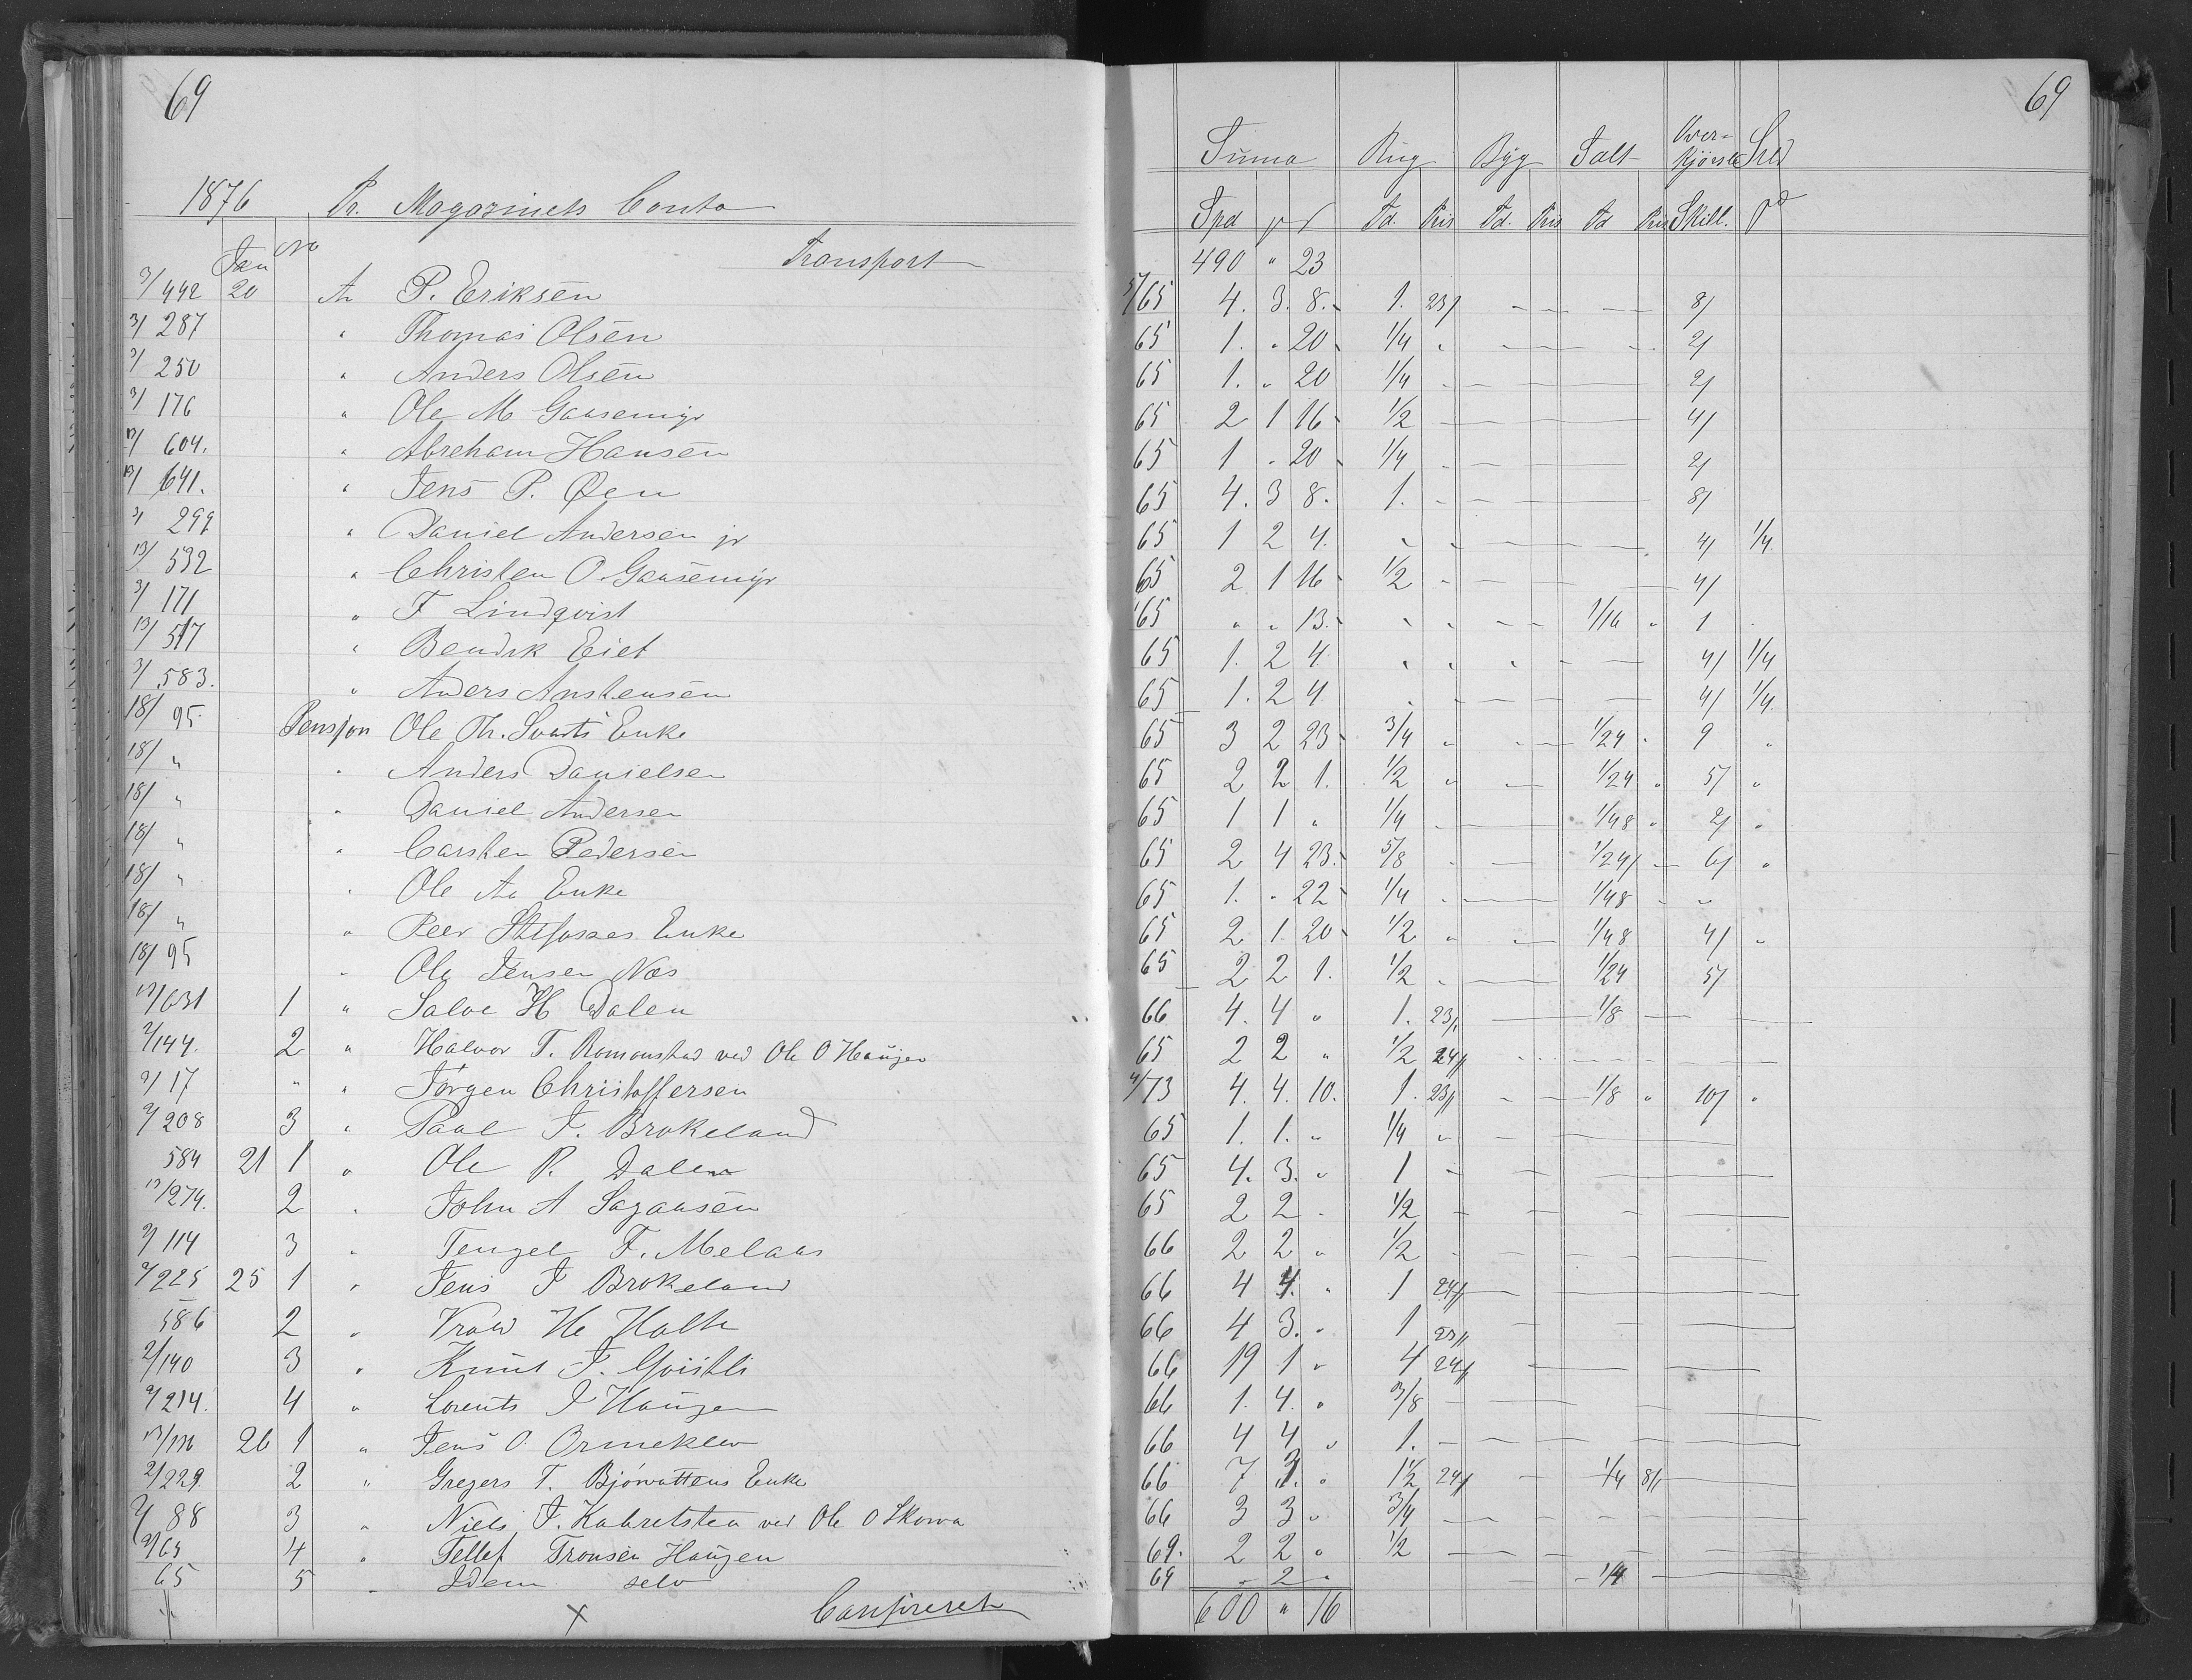 69
1876 Pr. Magazinets Conto
Jan No Transport
3/442 20 An P. Eriksen
3/ 287 " Thomas Olsen
3/ 250 " Anders Olsen
3/ 176 " Ole M Gaasemyr
604. " Abreham Hansen
641. " Jens P. Øen
3/ 299 " Daniel Andersen jr
13/ 532 " Christen O. Gaasemyr
3/ 171 " F Lindqvist
13/ 517 " Bendik Eiet
3/ 583. " Anders Anstensen
18/ 95. Pensjon Ole Th. Svarts Enke
18/ " " Anders Danielsen
18/ " " Daniel Andersen
18/ " " Carsten Pedersen
18/ " " Ole Aa Enke
18/ " " Peer Enke
18/ 95 " Ole Jensen Næs
631 1 " Salve H Dalen
2/144. 2 " Halvor T. Romonstad ved Ole O Haugen
2/ 17 " " Jørgen Christoffersen
2/ 208 3 " Paal J. Brokeland
584 21 1 " Ole P. Dalen
274. 2 " John A Sagaasen
2/ 114 3 " Tengel F. Melaas
2/ 225 25 1 " Jens J Brokeland
586 2 " He Holte
2/140 3 " Knut J.
2/ 214. 4 " Lorents J Haugen
26 1 " Jens O. Ormeklev
2/229. 2 " Gregers T. Bjørvattens Enke
2/ 88 3 " Niels J. ved Ole O Skorva
2/65 4 " Tellef Tronsen Haugen
65 5 " Idem selv
69
Summa Rug Byg Salt Overkjørsel Sild
Spd # ß Td. Pris Td. Pris Td Pris Skill. Td
490 " 23
5/65 4. 3. 8. 1. 23/ 8/
65 1. " 20 1/4 " 2/
65 1. " 20 1/4 2/
65 2 1 16 1/2 4/
65 1 " 20 1/4 2/
65 4. 3 8. 1. 8/
65 1 2 4. 4/ 1/4
65 2 1 16 1/2 4/
65 " " 13. 1/16 " 1
65 1. 2 4 4/ 1/4
65 1. 2 4 4/ 1/4
65 3 2 23 3/4 " 1/24 9 "
65 2 2 1. 1/2 " 1/24 " 5/ "
65 1 1 " 1/4 1/48 " 2/ "
65 2 4 23. 5/8 1/24 6/ "
65 1. " 22 1/4 1/48
65 2 1 20 1/2 " 1/48 4/ "
65 2 2 1. 1/2 1/24 5/
66 4. 4 " 1. 23/ 1/8
65 2 2 " 1/2 24/
4/73 4. 4. 10. 1. 23/ 1/8 " 10/ "
65 1. 1. " 1/4 "
65 4. 3. " 1
65 2 2 " 1/2
66 2 2 " 1/2
66 4 4. " 1 24/
66 4 3. " 1 23/
66 19 1 " 4 24/
66 1. 4. " 3/8
66 4 4 " 1.
66 7 " 1 1/2 24/ 1/4 8/
66 3 3 " 3/4
69. 2 2 " 1/2
69 " 2 " 1/4
600 " 16